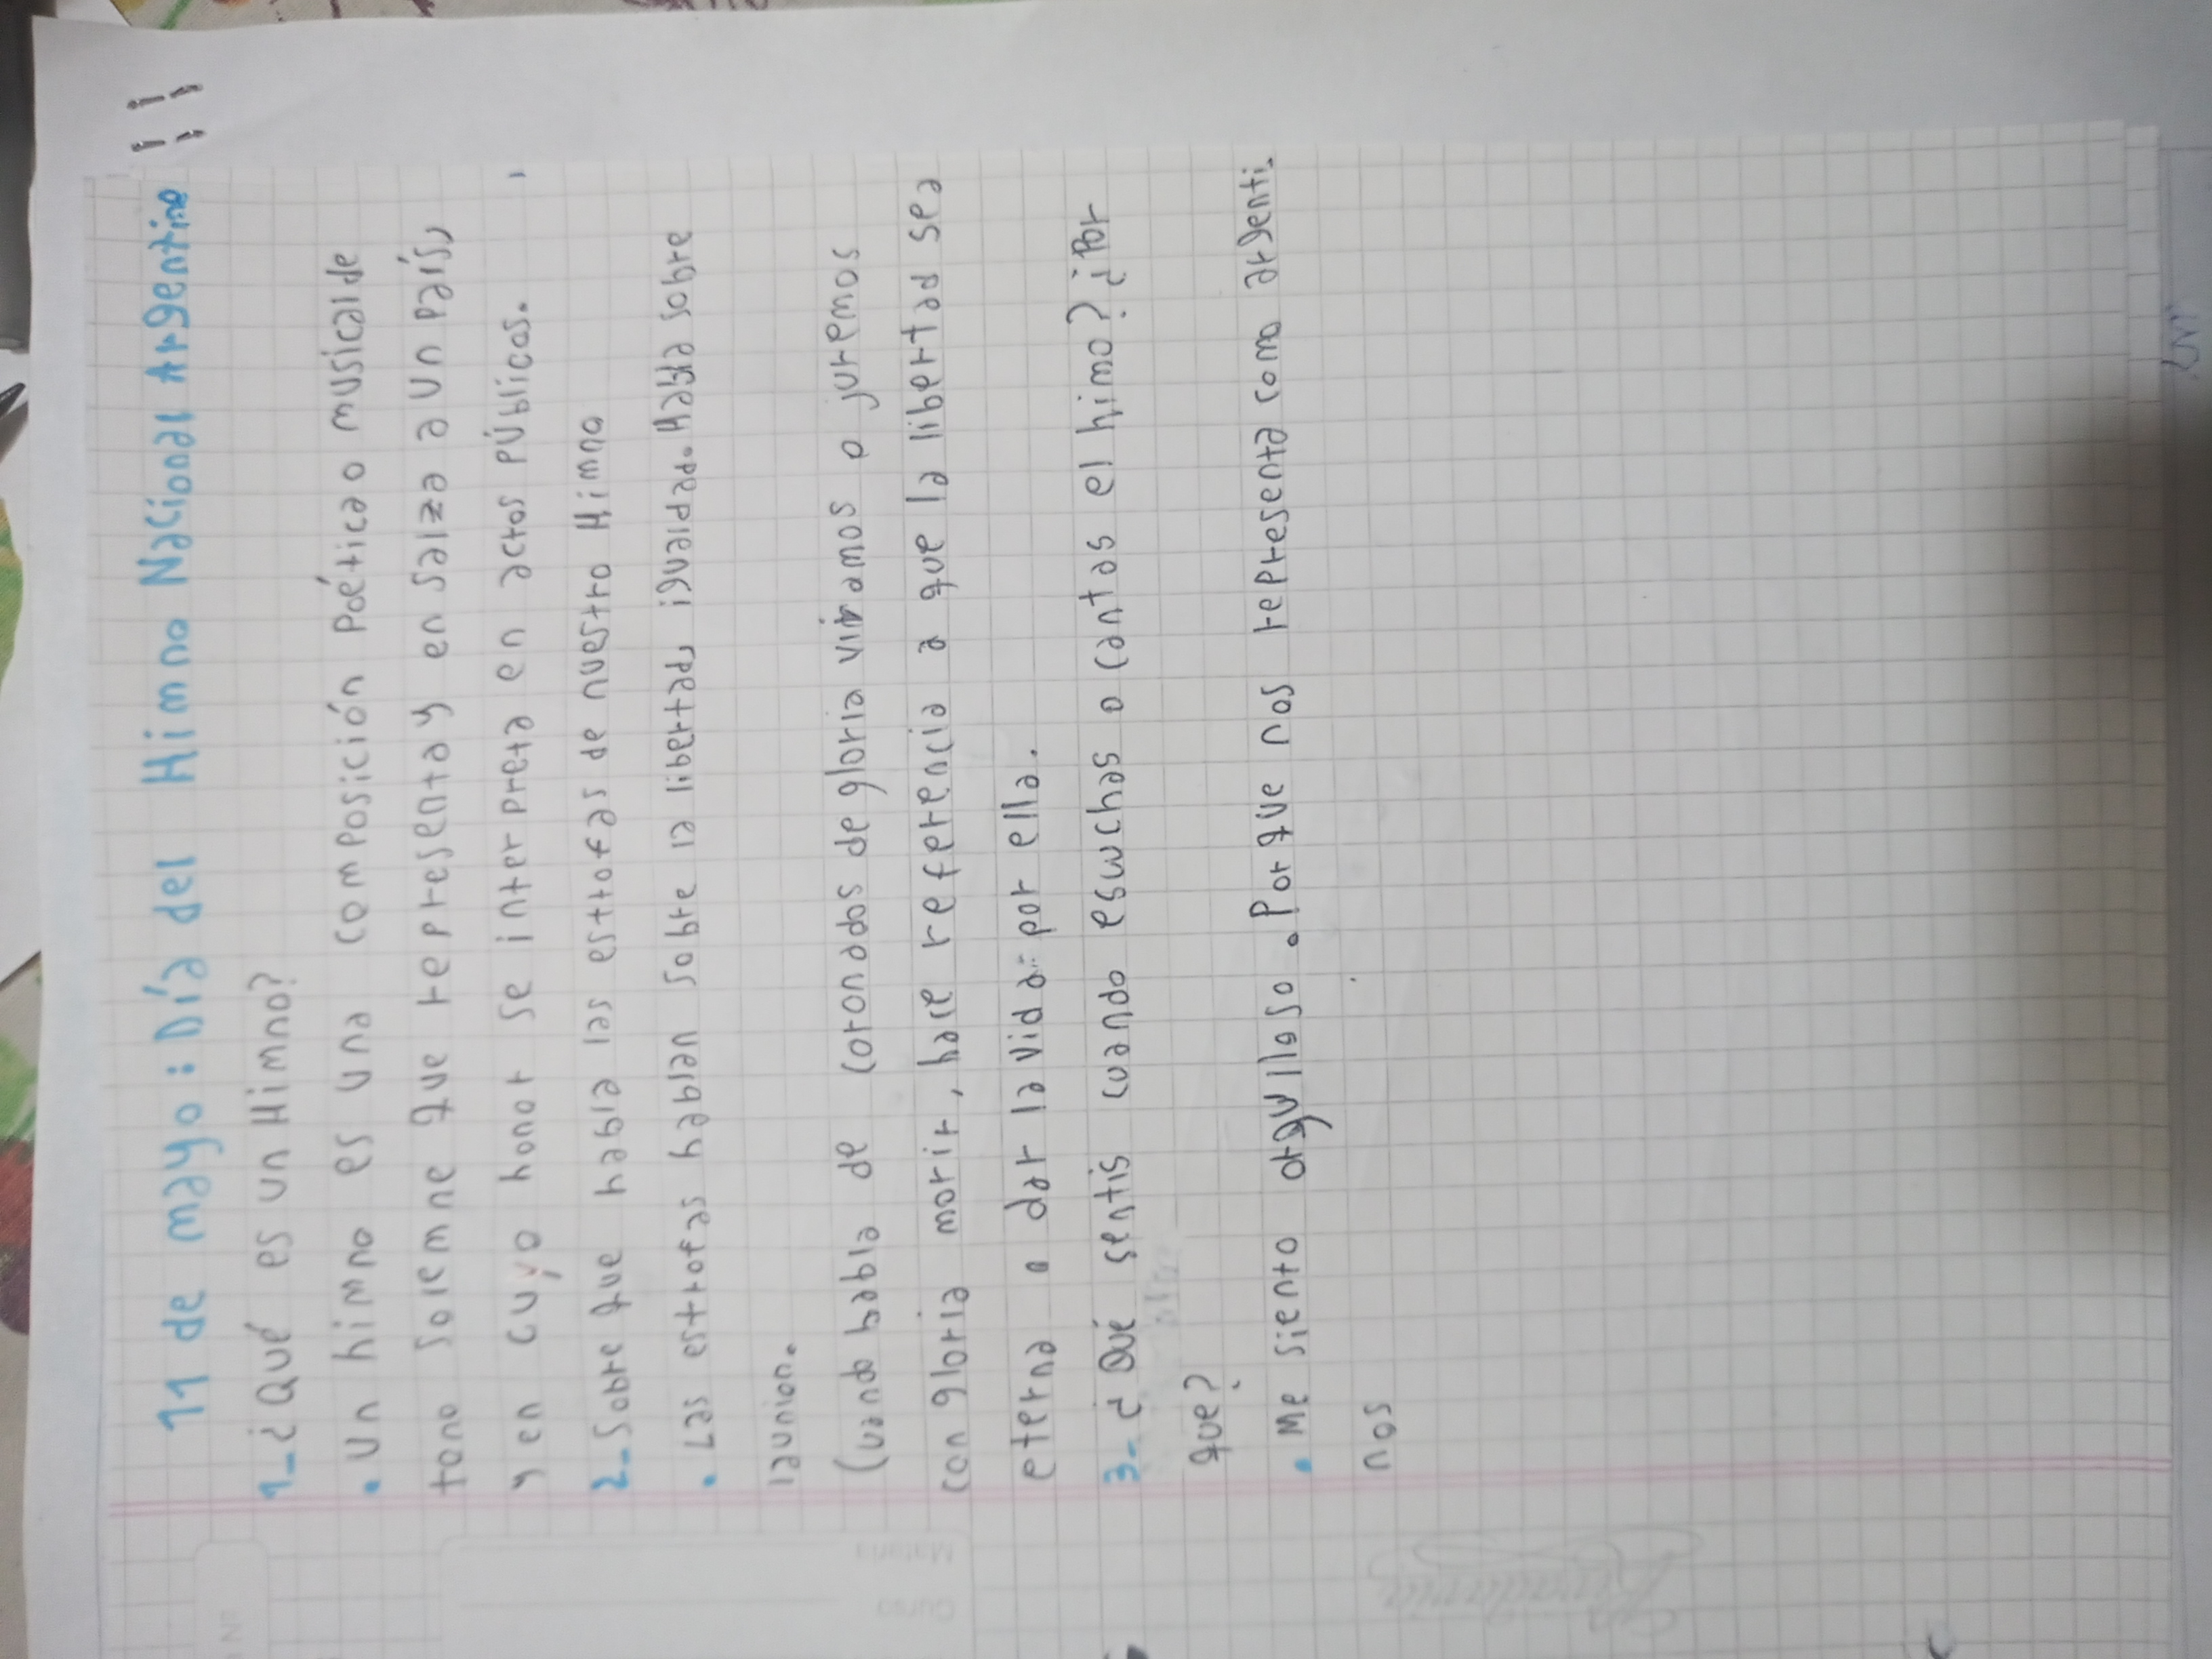 11 de mayo: Día del Himno Nacional Argentino
1_¿Qué es un Himno?
• Un himno es una composición poética o musical de
tono solemne que representa y en salza a un país,
y en cuyo honor se interpreta en actos públicos.
2_Sobre que habla las estrofas de nuestro Himno
• Las estrofas hablan sobre la libertad, igualdad. Habla sobre
la union.
Cuando habla de coronados de gloria vivamos o juremos
con gloria morir, hace referencia a que la libertad sea
eterna o dar la vida por ella.
3-¿Qué sentis cuando escuchas o cantas el himo? ¿Por
que?
• Me siento orgulloso. Por que nos representa como argenti_
nos
Rivadavia